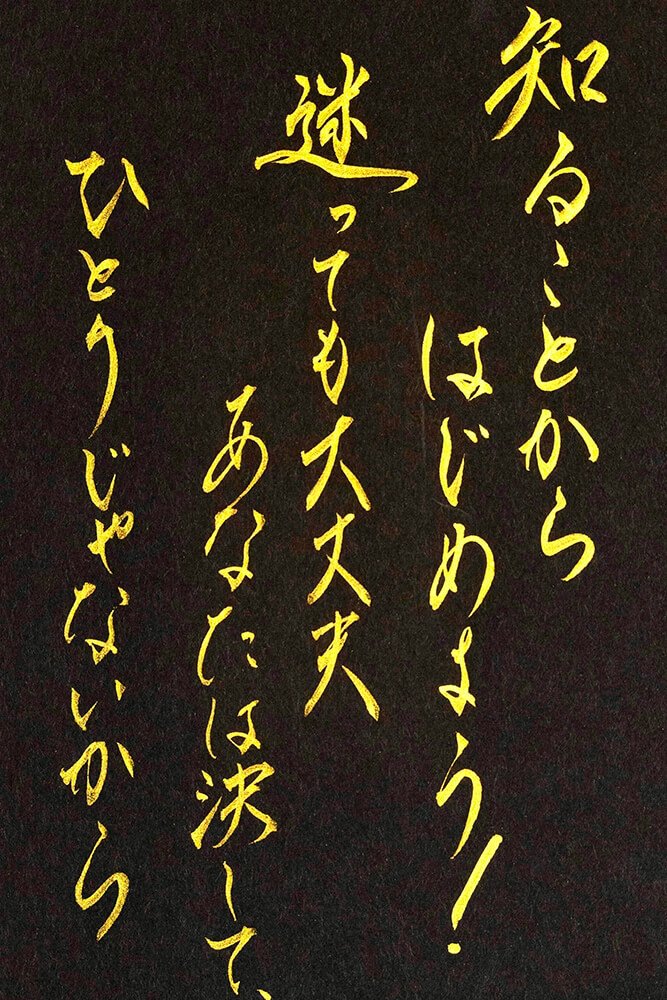 知ることから
はじめよう!
迷っても大丈夫
あなたは決して、
ひとりじゃないから